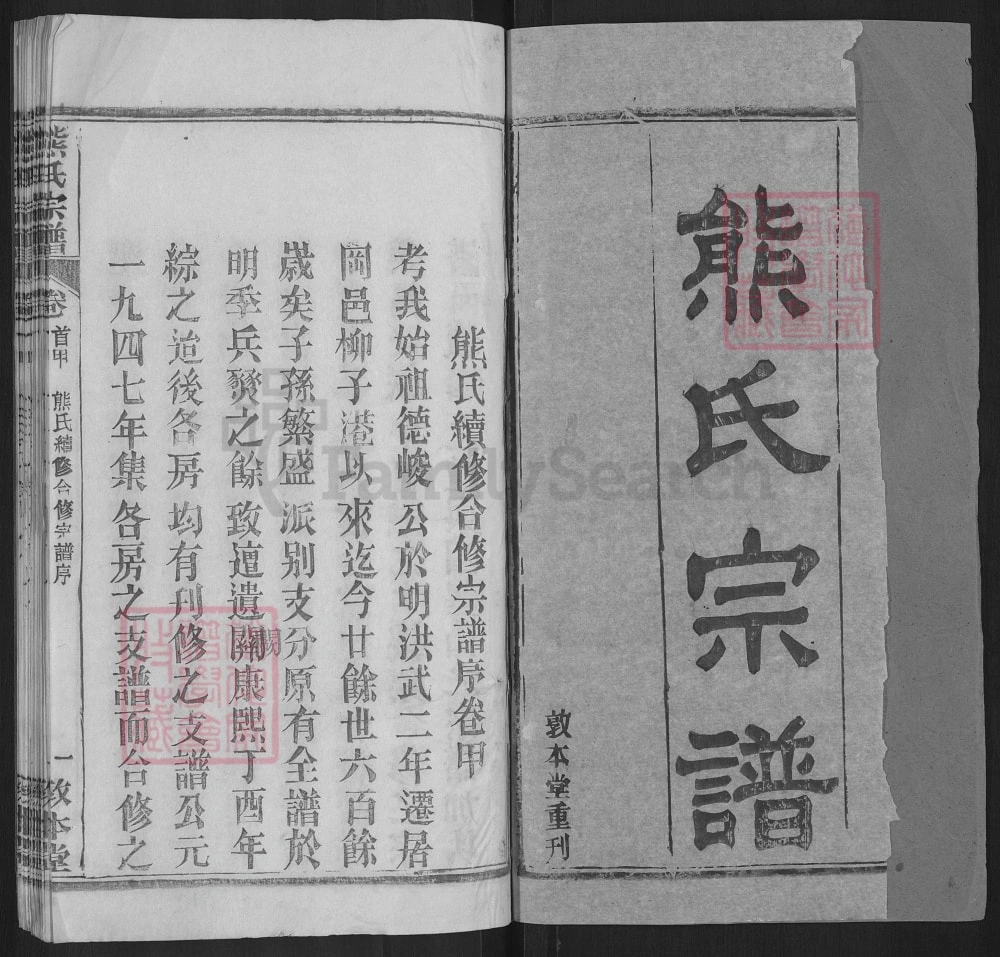 熊氏宗譜
敦本堂重刊
熊氏續修合修宗譜序卷甲
考我始祖德峻公於明洪武二年遷居
岡邑柳子港以來迄今廿餘世六百餘
歲矣子孫繁盛派別支分原有全譜於
明季兵燹之餘致遭遺闕康熙丁酉年
綜之迨後各房均有刊修之支譜公元
一九四七年集各房之支譜而合修之
熊氏宗譜
卷首甲 熊氏續修合修宗譜序
一 敦本堂
FamilySearch